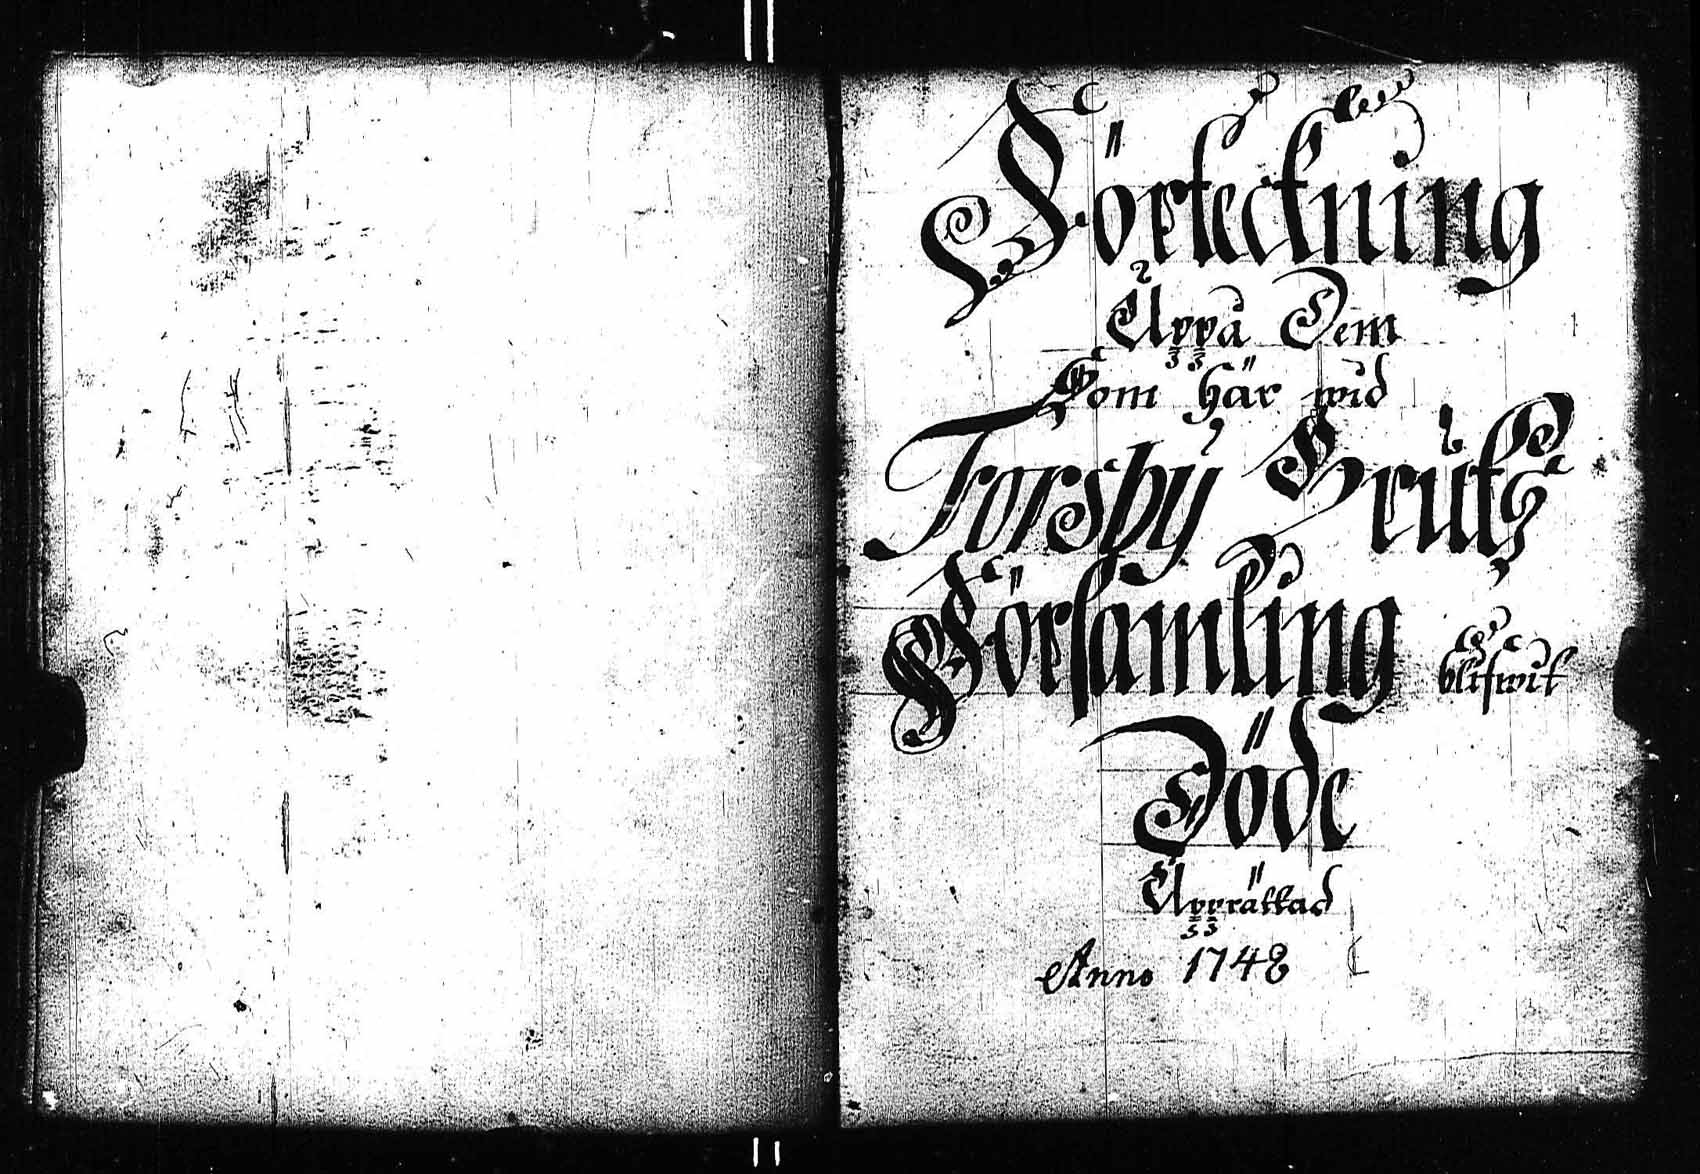 Förteckning
Uppå Dem
Som här wid
Forsby Bruks
Församling blifwit
Döde
Upprättad
Anno 1748